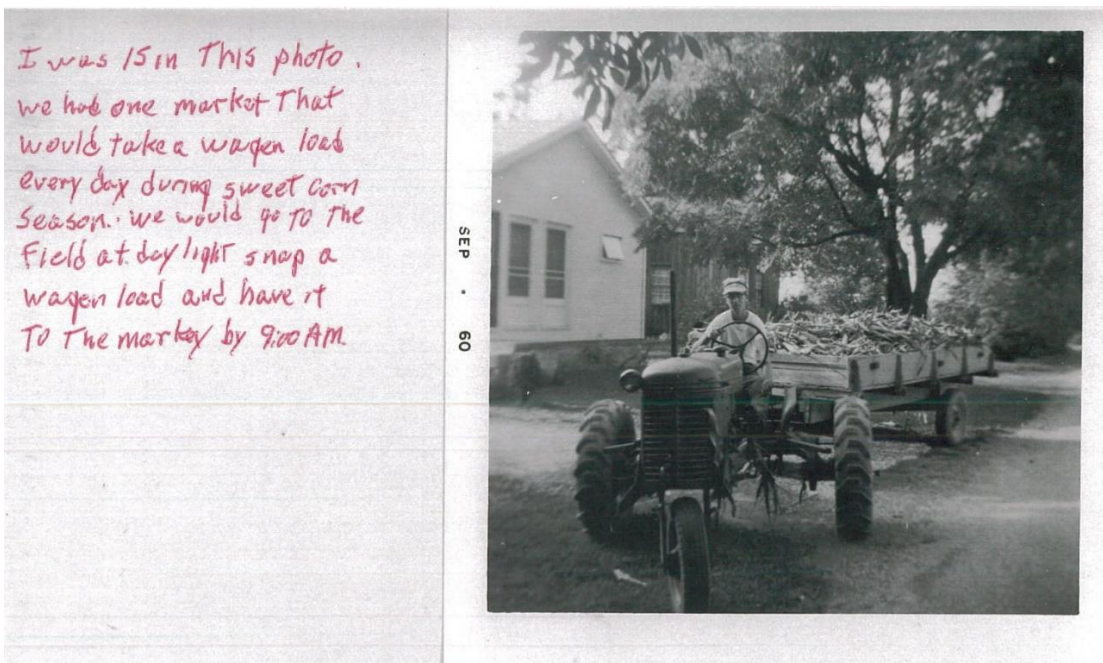 I was 15 in This photo.
we had one market That
would take a wagen load
every day during sweet corn
season. we would go To The
Field at day light snap a
wagen load and have it
To The markey by 9:00 AM.
SEP . 60